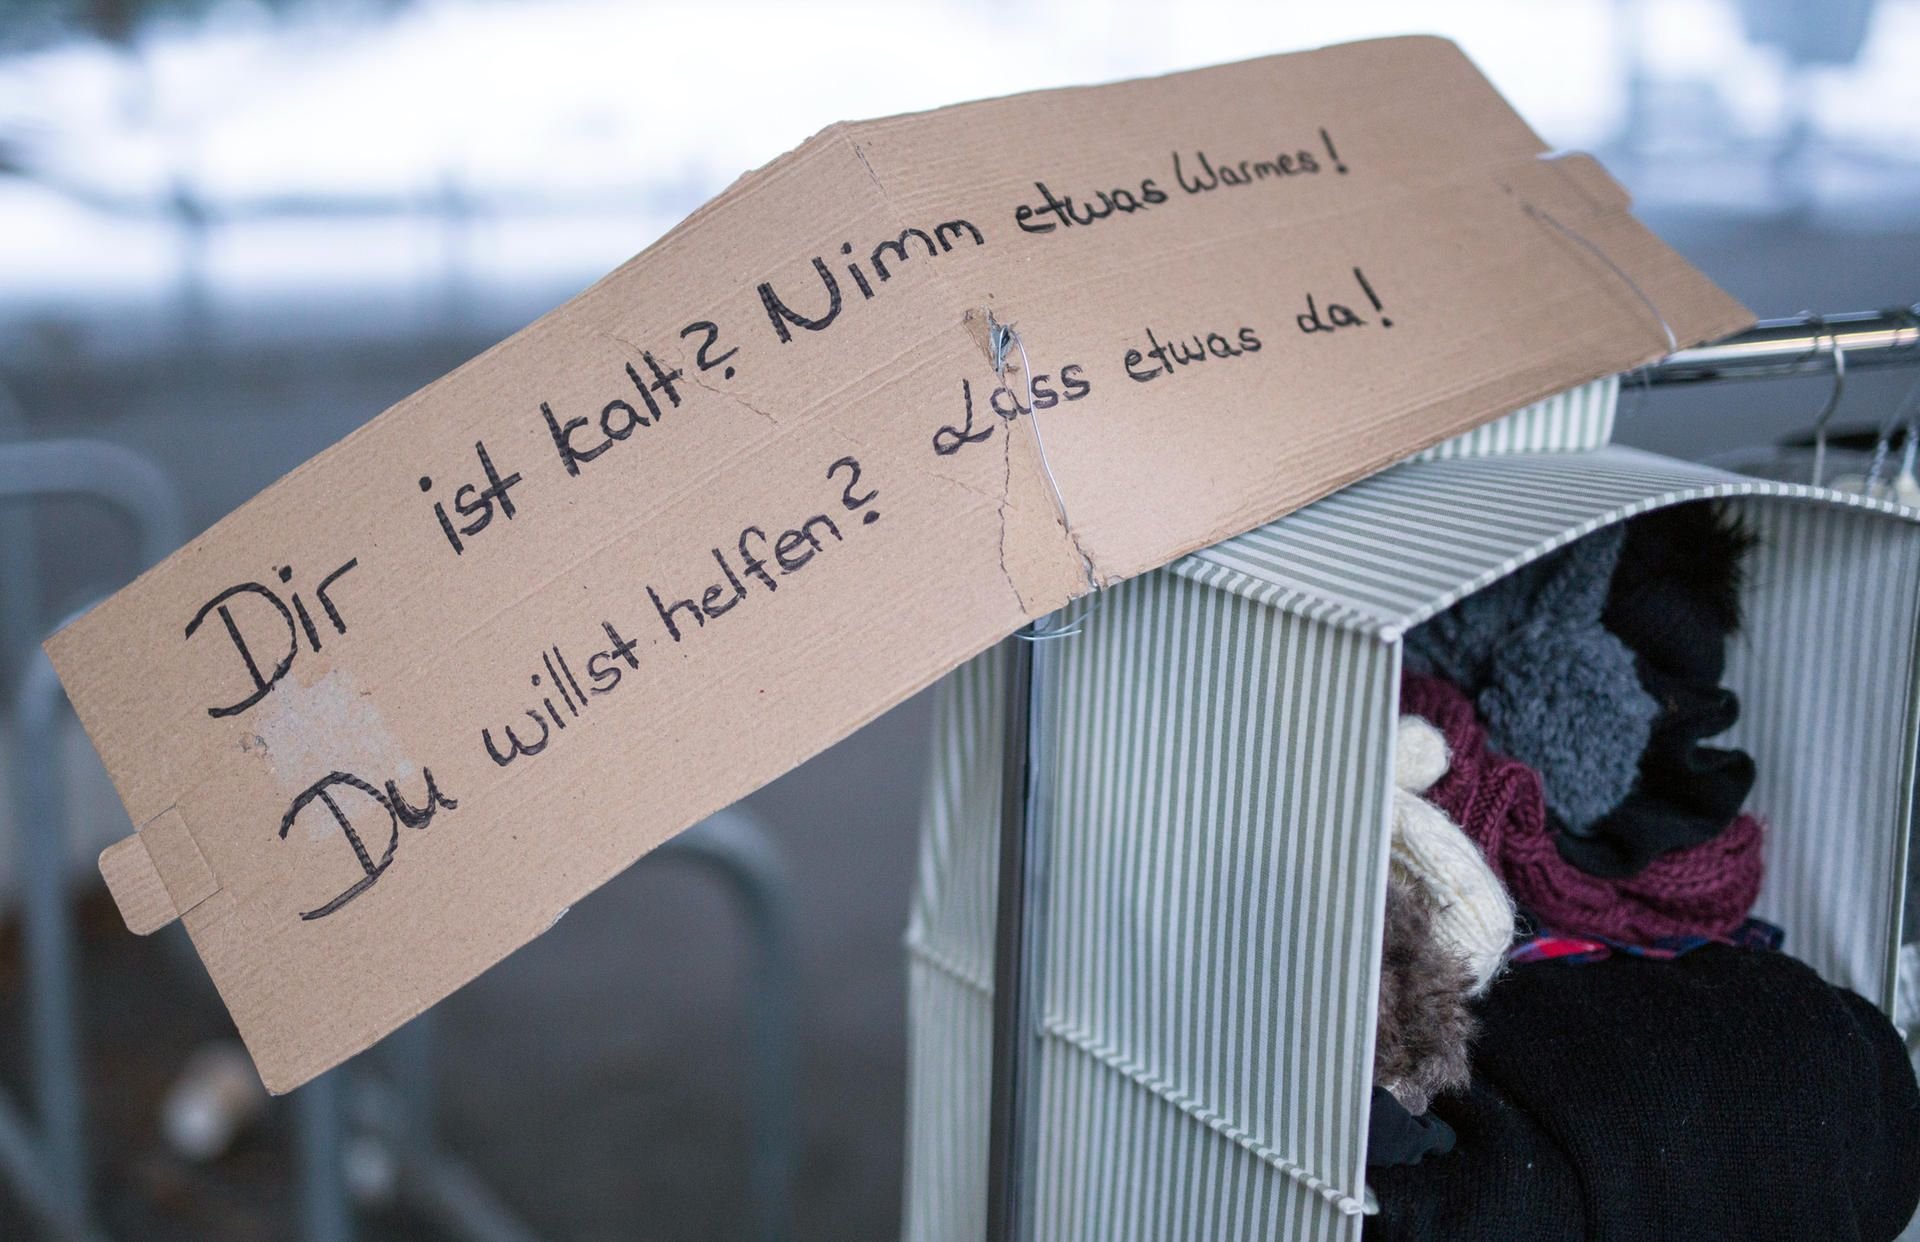 Dir ist kalt? Nimm etwas Warmes!
Du willst helfen? Lass etwas da!